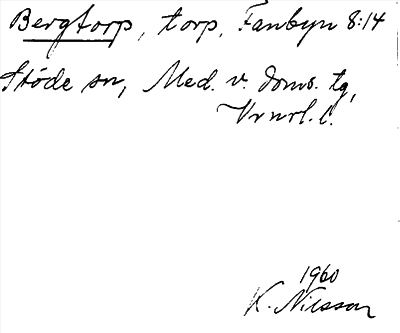 Bergtorp, torp, Fanbyn 8:14
Stöde sn, Med. v. doms. tg,
Vrnrl. l.
1960
K. Nilsson